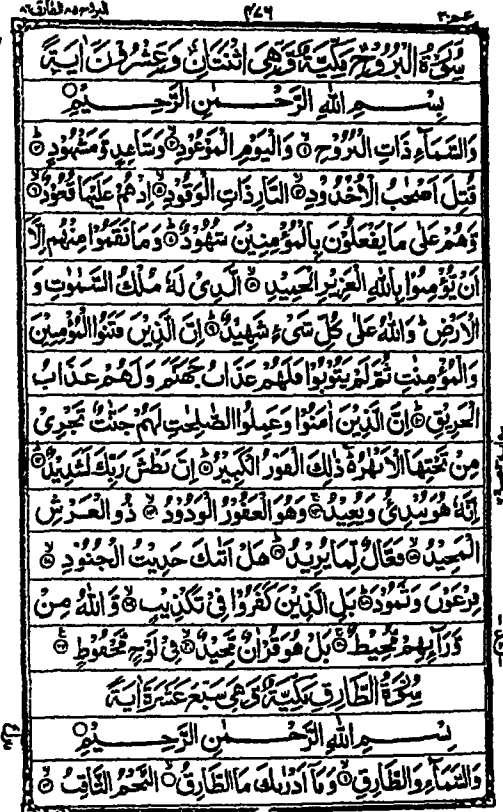 البروج ٨٥ الطارق ٨٦ ٤٧٦ عم ٣٠
سُوْرَةُ الْبُرُوْجِ مَكِّيَّةٌ وَّهِىَ اثْنَتَانِ وَعِشْرُوْنَ اٰيَةً
بِسْمِ اللّٰهِ الرَّحْمٰنِ الرَّحِيْمِ
وَالسَّمَآءِ ذَاتِ الْبُرُوْجِ ۝ وَالْيَوْمِ الْمَوْعُوْدِ ۝ وَشَاهِدٍ وَّمَشْهُوْدٍ ۝
قُتِلَ اَصْحٰبُ الْاُخْدُوْدِ ۝ النَّارِ ذَاتِ الْوَقُوْدِ ۝ اِذْ هُمْ عَلَيْهَا قُعُوْدٌ ۝
وَّهُمْ عَلٰى مَا يَفْعَلُوْنَ بِالْمُؤْمِنِيْنَ شُهُوْدٌ ۝ وَمَا نَقَمُوْا مِنْهُمْ اِلَّآ
اَنْ يُّؤْمِنُوْا بِاللّٰهِ الْعَزِيْزِ الْحَمِيْدِ ۝ الَّذِىْ لَهٗ مُلْكُ السَّمٰوٰتِ وَ
الْاَرْضِ ؕ وَاللّٰهُ عَلٰى كُلِّ شَىْءٍ شَهِيْدٌ ۝ اِنَّ الَّذِيْنَ فَتَنُوا الْمُؤْمِنِيْنَ
وَالْمُؤْمِنٰتِ ثُمَّ لَمْ يَتُوْبُوْا فَلَهُمْ عَذَابُ جَهَنَّمَ وَلَهُمْ عَذَابُ
الْحَرِيْقِ ۝ اِنَّ الَّذِيْنَ اٰمَنُوْا وَعَمِلُوا الصّٰلِحٰتِ لَهُمْ جَنّٰتٌ تَجْرِىْ
مِنْ تَحْتِهَا الْاَنْهٰرُ ؕ ذٰلِكَ الْفَوْزُ الْكَبِيْرُ ۝ اِنَّ بَطْشَ رَبِّكَ لَشَدِيْدٌ ۝
اِنَّهٗ هُوَ يُبْدِئُ وَيُعِيْدُ ۝ وَهُوَ الْغَفُوْرُ الْوَدُوْدُ ۝ ذُو الْعَرْشِ
الْمَجِيْدُ ۝ فَعَّالٌ لِّمَا يُرِيْدُ ۝ هَلْ اَتٰىكَ حَدِيْثُ الْجُنُوْدِ ۝
فِرْعَوْنَ وَثَمُوْدَ ۝ بَلِ الَّذِيْنَ كَفَرُوْا فِىْ تَكْذِيْبٍ ۝ وَّاللّٰهُ مِنْ
وَّرَآئِهِمْ مُّحِيْطٌ ۝ بَلْ هُوَ قُرْاٰنٌ مَّجِيْدٌ ۝ فِىْ لَوْحٍ مَّحْفُوْظٍ ۝
سُوْرَةُ الطَّارِقِ مَكِّيَّةٌ وَّهِىَ سَبْعَ عَشَرَةَ اٰيَةً
بِسْمِ اللّٰهِ الرَّحْمٰنِ الرَّحِيْمِ
وَالسَّمَآءِ وَالطَّارِقِ ۝ وَمَآ اَدْرٰىكَ مَا الطَّارِقُ ۝ النَّجْمُ الثَّاقِبُ ۝